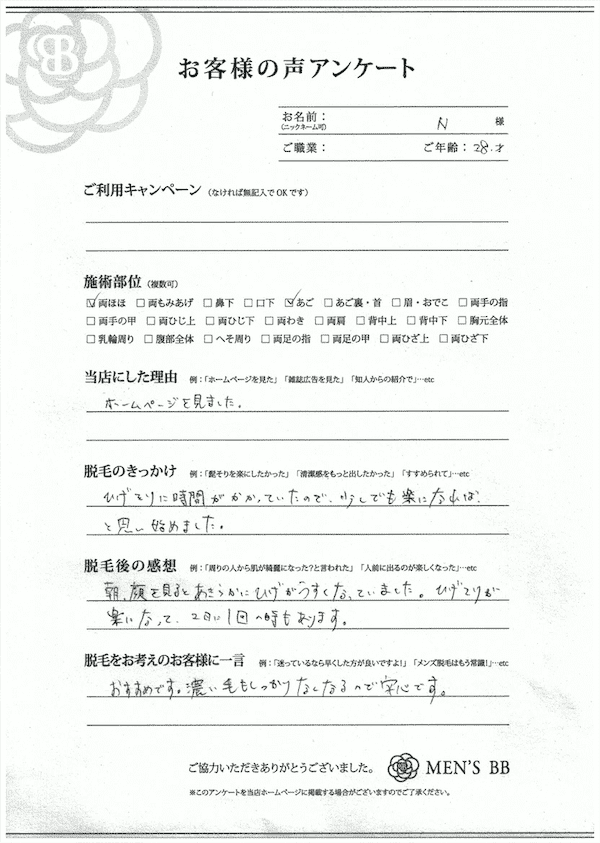 お客様の声アンケート
お名前：
（ニックネーム可）
N 様
ご職業： ご年齢：28才
ご利用キャンペーン（なければ無記入でOKです）
施術部位（複数可）
☑両ほほ □両もみあげ □鼻下 □口下 ☑あご □あご裏・首 □眉・おでこ □両手の指
□両手の甲 □両ひじ上 □両ひじ下 □両わき □両肩 □背中上 □背中下 □胸元全体
□乳輪周り □腹部全体 □へそ周り □両足の指 □両足の甲 □両ひざ上 □両ひざ下
当店にした理由 例：「ホームページを見た」「雑誌広告を見た」「知人からの紹介で」…etc
ホームページを見ました。
脱毛のきっかけ 例：「髭そりを楽にしたかった」「清潔感をもっと出したかった」「すすめられて」…etc
ひげそりに時間がかかっていたので、少しでも楽になれば、
と思い始めました。
脱毛後の感想 例：「周りの人から肌が綺麗になった？と言われた」「人前に出るのが楽しくなった」…etc
朝、顔を見るとあきらかにひげがうすくなっていました。ひげそりが
楽になって、2日に1回の時もあります。
脱毛をお考えのお客様に一言 例：「迷っているなら早くした方が良いですよ！」「メンズ脱毛はもう常識！」…etc
おすすめです。濃い毛もしっかりなくなるので安心です。
ご協力いただきありがとうございました。 MEN'S BB
※このアンケートを当店ホームページに掲載する場合がございますのでご了承ください。